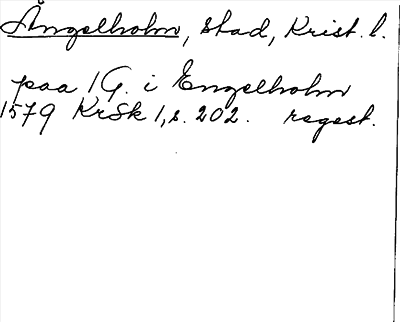 Ängelholm, stad, Krist. l.
paa 1 G. i Engelholm
1579 KrSk 1, s. 202. regest.